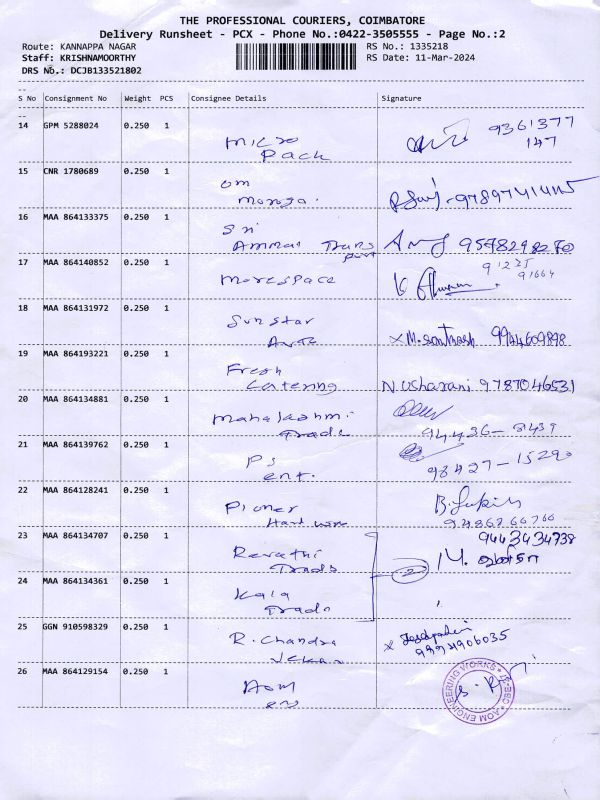 THE PROFESSIONAL COURIERS, COIMBATORE
Delivery Runsheet - PCX - Phone No.:0422-3505555 - Page No.:2
Route: KANNAPPA NAGAR RS No.: 1335218
Staff: KRISHNAMOORTHY RS Date: 11-Mar-2024
DRS No.: DCJB133521802
S No Consignment No Weight PCS Consignee Details Signature
14 GPM 5288024 0.250 1
Micro 9361377
Pack 147
15 CNR 1780689 0.250 1
om
16 MAA 864133375 0.250 1
Sri
Ammai Trans 9578298270
port
17 MAA 864140852 0.250 1
morespace
18 MAA 864131972 0.250 1
Sunstar
x M. Santhosh 9944609898
19 MAA 864193221 0.250 1
Fresh
Catering N. Usharani 9787046531
20 MAA 864134881 0.250 1
Mahalashmi
Trade 94436-3439
21 MAA 864139762 0.250 1
PS
ent. 98427-15290
22 MAA 864128241 0.250 1
Pioner
Hard ware
23 MAA 864134707 0.250 1 9443434738
Revathi M.
Trade 2
24 MAA 864134361 0.250 1
Kala
Trade
25 GGN 910598329 0.250 1
R. Chandra
9994906035
26 MAA 864129154 0.250 1
Aom
en
AOM ENGINEERING WORKS CBE-17